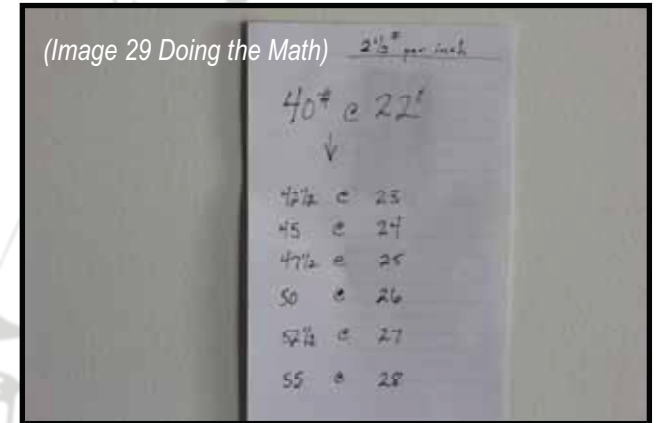 (Image 29 Doing the Math)
2½# per inch
40# @ 22"
↓
42½ @ 23
45 @ 24
47½ @ 25
50 @ 26
52½ @ 27
55 @ 28